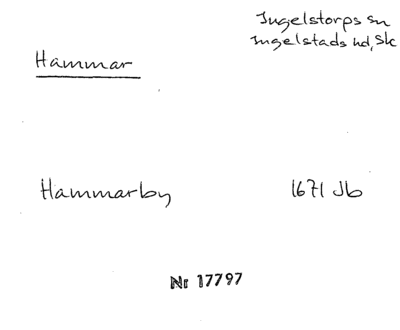 Ingelstorps sn
Ingelstads hd, Sk
Hammar
Hammarby 1671 Jb
Nr 17797